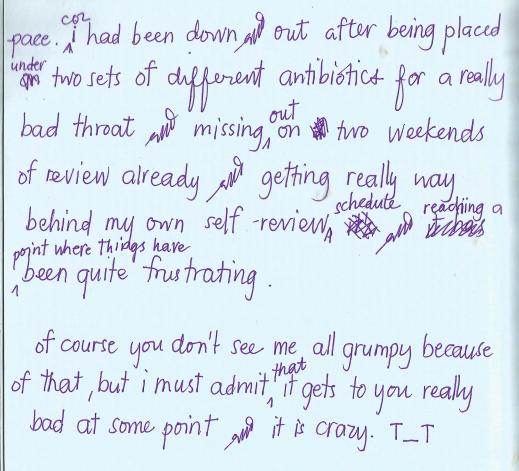 coz
pace. i had been down and out after being placed
under
two sets of different antibiotics for a really
bad throat and missing out on two weekends
of review already and getting really way
behind my own self-review schedule and reaching a
point where things have
been quite frustrating.
of course you don't see me all grumpy because
of that, but i must admit that it gets to you really
bad at some point and it is crazy. T_T